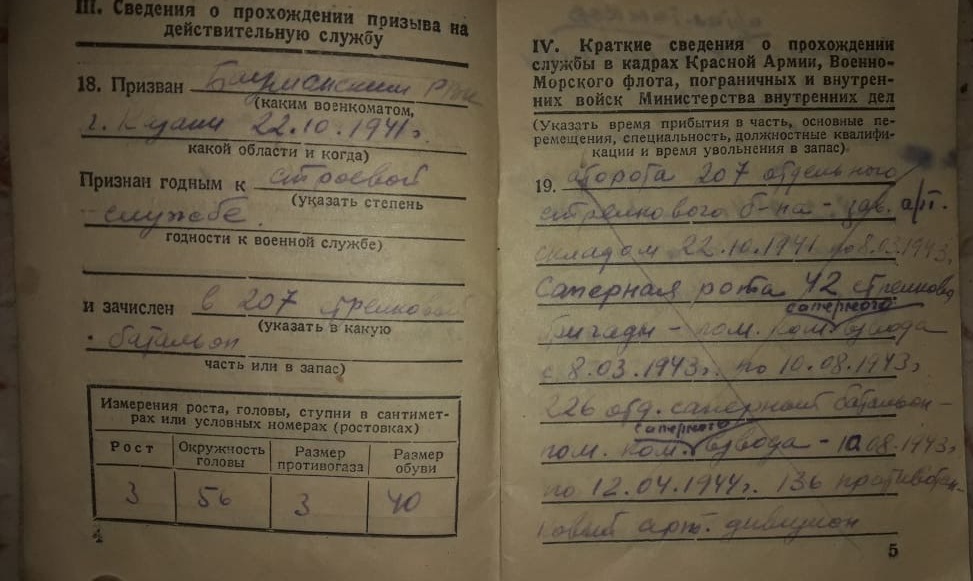 III. Сведения о прохождении призыва на
действительную службу
18. Призван Бауманским РВК
(каким военкоматом,
г. Казани 22.10.1941г.
какой области и когда)
Признан годным к строевой
(указать степень
службе
годности к военной службе)
и зачислен в 207 стрелковой
(указать в какую
батальон
часть или в запас)
Измерения роста, головы, ступни в сантимет-
рах или условных номерах (ростовках)
Рост Окружность головы Размер противогаза Размер обуви
3 56 3 40
4
IV. Краткие сведения о прохождении
службы в кадрах Красной Армии, Военно-
Морского флота, пограничных и внутрен-
них войск Министерства внутренних дел
(Указать время прибытия в часть, основные пе-
ремещения, специальность, должностные квалифи-
кации и время увольнения в запас)
19. 207 отдельного
стрелкового б-на - зав. а/п.
складом 22.10.1941 по 8.03.1943г
Саперная рота 42 стрелково
саперного
бригады - пом. ком. взвода
с 8.03.1943г. по 10.08.1943г
226 отд. саперный батальон -
саперного
пом. ком. взвода - 10.08.1943г
по 12.04.1944г. 136 противотан-
ковый арт. дивизион
5